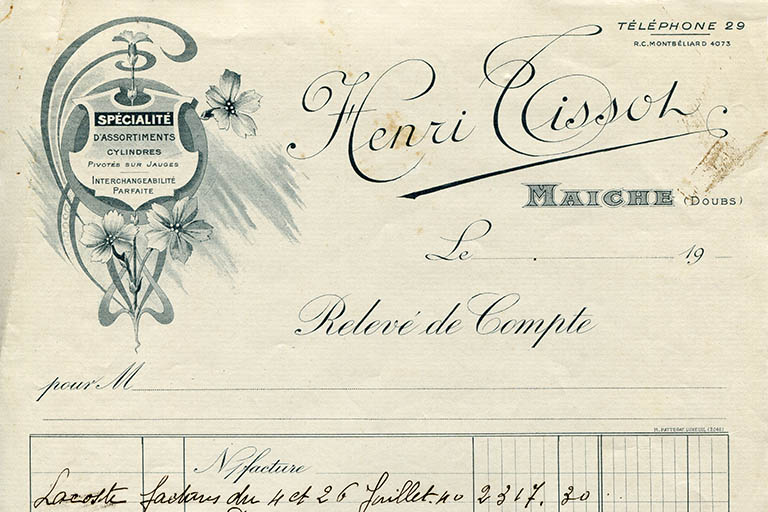 TÉLÉPHONE 29
R.C. MONTBÉLIARD 4073
Henri Tissot
MAICHE (DOUBS)
SPÉCIALITÉ
D'ASSORTIMENTS
CYLINDRES
PIVOTÉS SUR JAUGES
INTERCHANGEABILITÉ
PARFAITE
Le 19
Relevé de Compte
pour M
N/facture
Lacoste factures du 4 et 26 Juillet 40 2317. 30